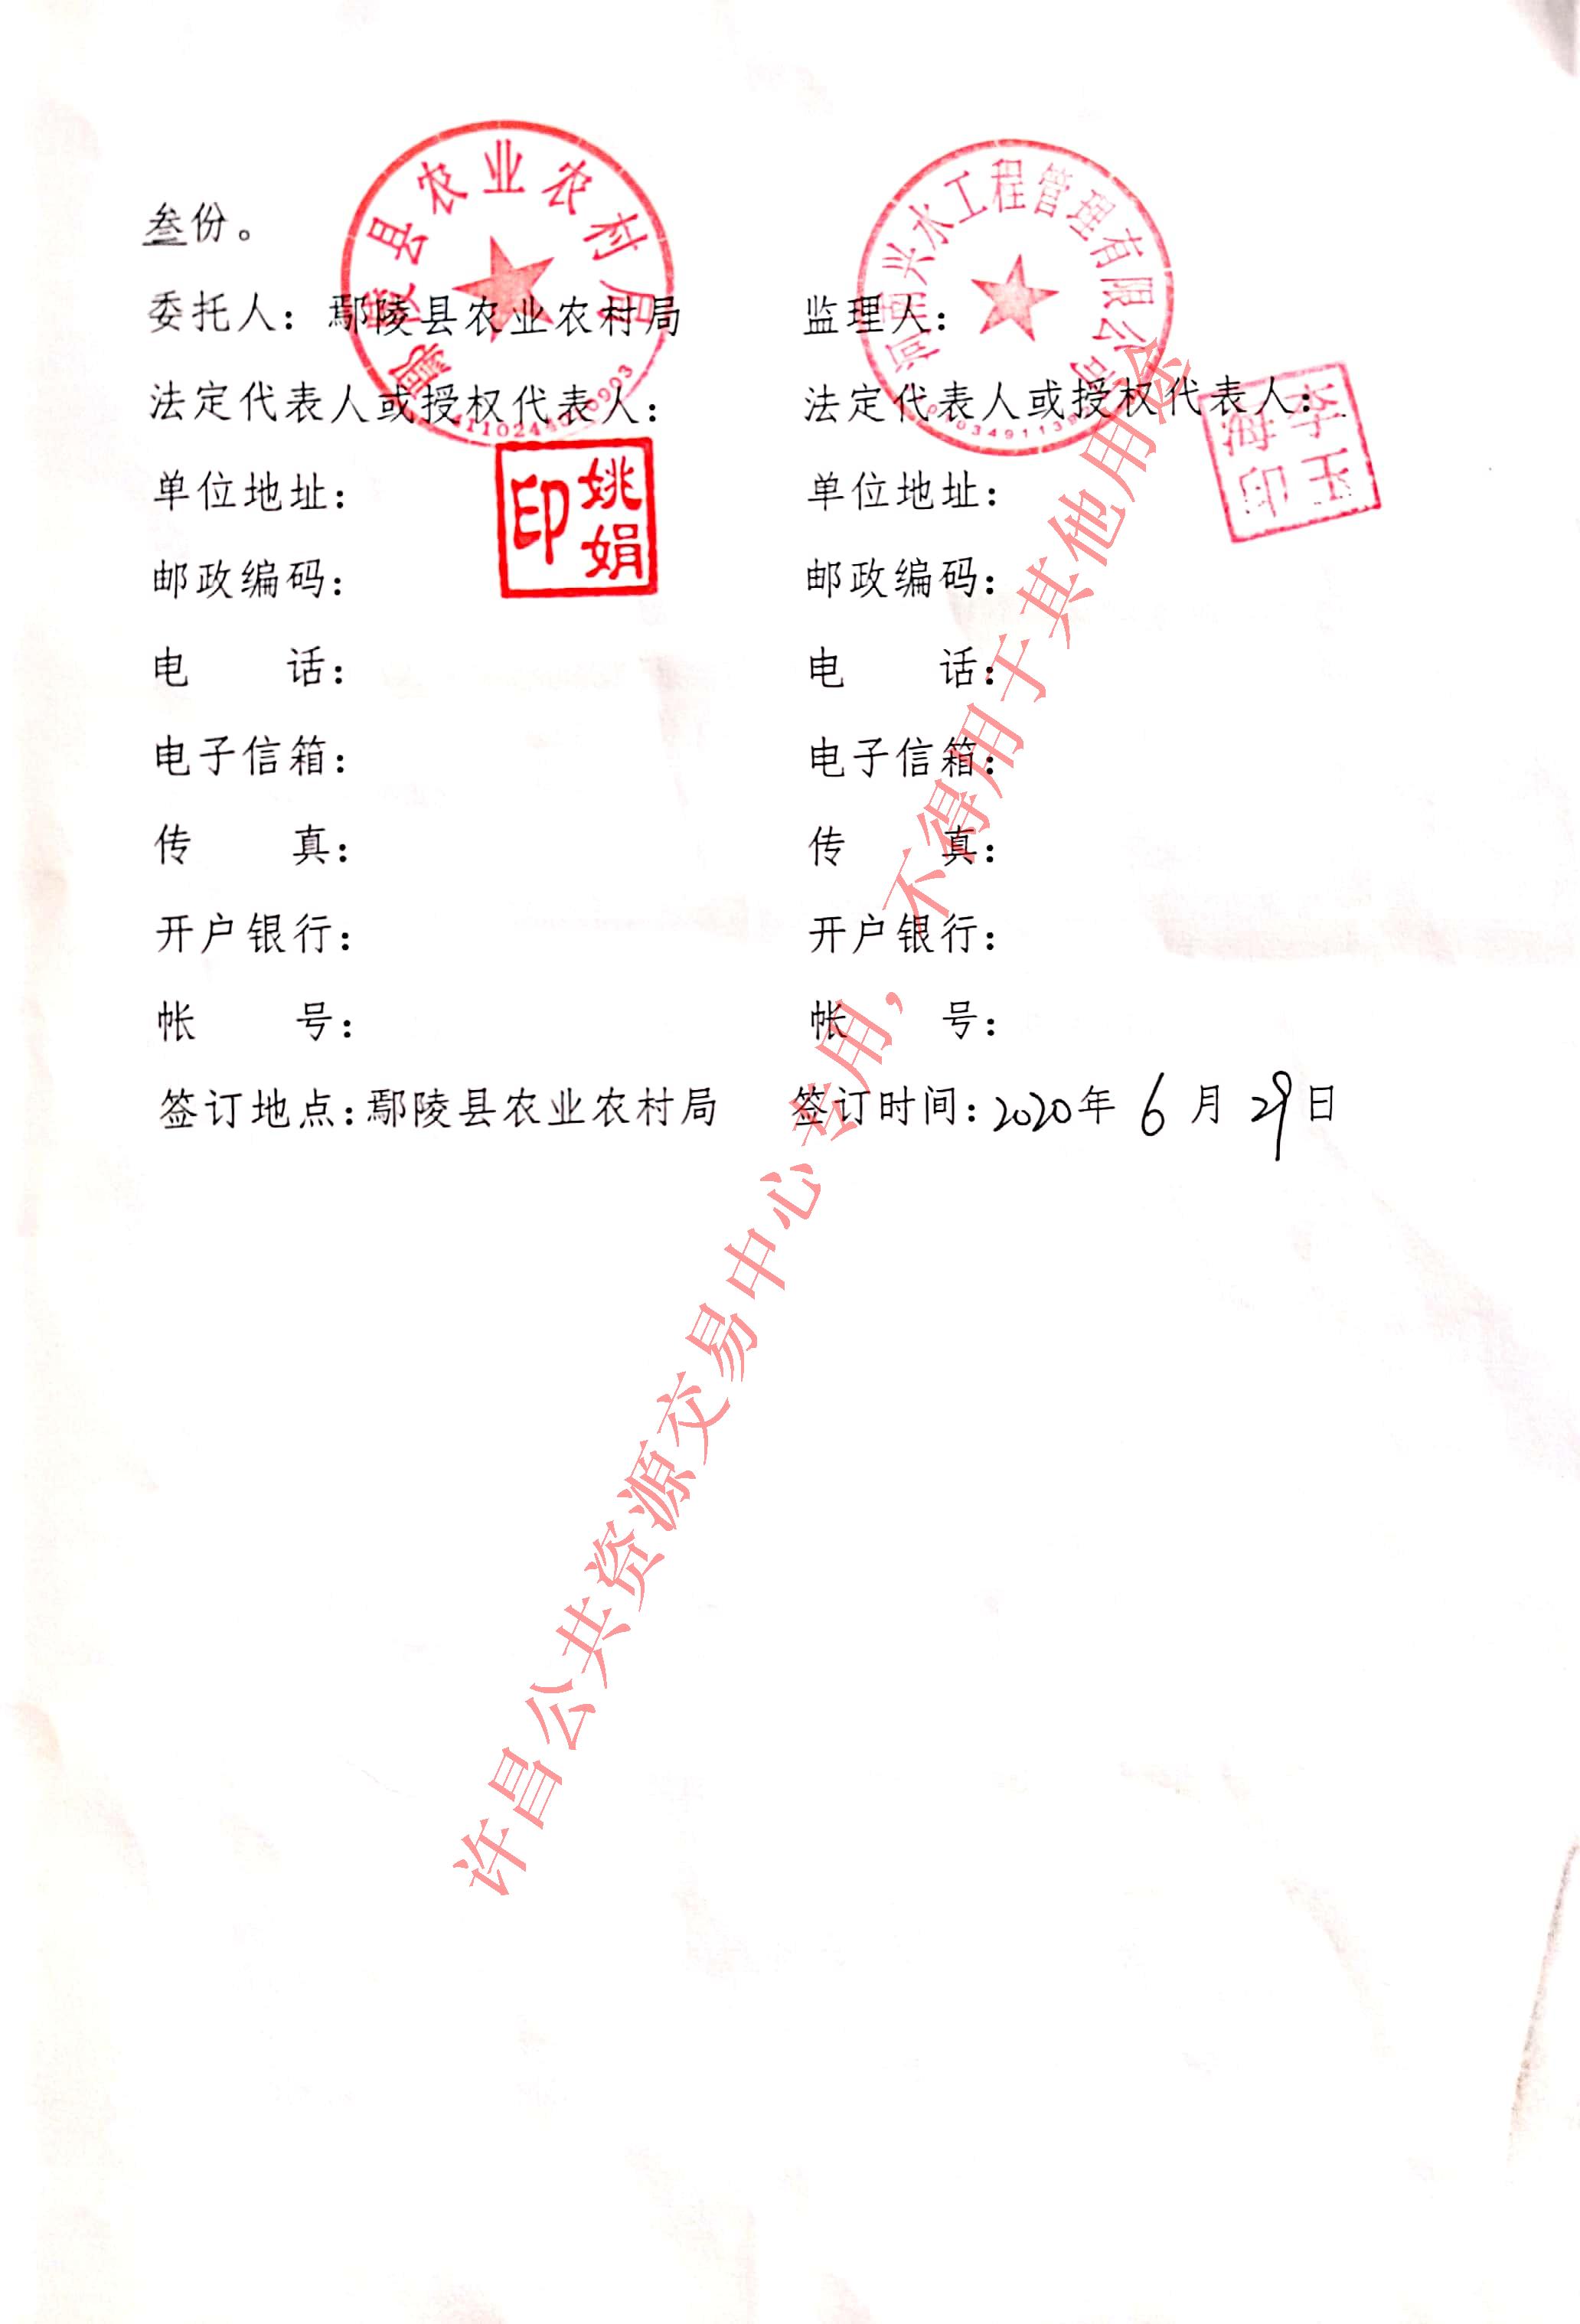 叁份。
委托人：鄢陵县农业农村局
法定代表人或授权代表人：
单位地址：
邮政编码：
电 话：
电子信箱：
传 真：
开户银行：
帐 号：
签订地点：鄢陵县农业农村局
监理人：
法定代表人或授权代表人：
单位地址：
邮政编码：
电 话：
电子信箱：
传 真：
开户银行：
帐 号：
签订时间：2020年 6 月 29日
鄢陵县农业农村局
姚娟印
河南兴水工程管理有限公司
李玉海印
许昌公共资源交易中心专用，不得用于其他用途